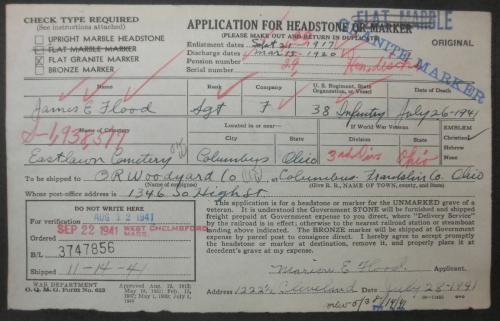 CHECK TYPE REQUIRED
(See instructions attached)
UPRIGHT MARBLE HEADSTONE
FLAT MARBLE MARKER
FLAT GRANITE MARKER
BRONZE MARKER
APPLICATION FOR HEADSTONE OR MARKER
(PLEASE MAKE OUT AND RETURN IN DUPLICATE)
FLAT MARBLE
GRANITE MARKER
ORIGINAL
Enlistment dates Sept 21 1917
Discharge dates Mar 15 1920
Pension number
Serial number
Name Rank Company U. S. Regiment, State Organization, or Vessel Date of Death
James E Flood Sgt F 38 Infantry July 26-1941
Name of Cemetery Located in or near— If World War Veteran EMBLEM
City State Division State
Christian
Hebrew
None
Eastlawn Cemetery Columbus Ohio 3rd Div Ohio
To be shipped to O R Woodyard Co at Columbus Franklin Co. Ohio
(Name of consignee) (Give R. R., NAME OF TOWN, county, and State)
Whose post-office address is 1346 So High St
DO NOT WRITE HERE
For verification AUG 12 1941
Ordered SEP 22 1941 WEST CHELMSFORD MASS.
B/L 3747856
Shipped 11-14-41
This application is for a headstone or marker for the UNMARKED grave of a
veteran. It is understood the Government STONE will be furnished and shipped
freight prepaid at Government expense to place, where "Delivery Service"
by the railroad is in effect; otherwise to the nearest railroad station or steamboat
landing above indicated. The BRONZE marker will be shipped at Government
expense by parcel post to consignee direct. I hereby agree to accept promptly
the headstone or marker at destination, remove it, and properly place it at
decedent's grave at my expense.
Marion E Flood Applicant.
Address 1222½ Cleveland July 28-1941
WAR DEPARTMENT
O. Q. M. G. Form No. 623